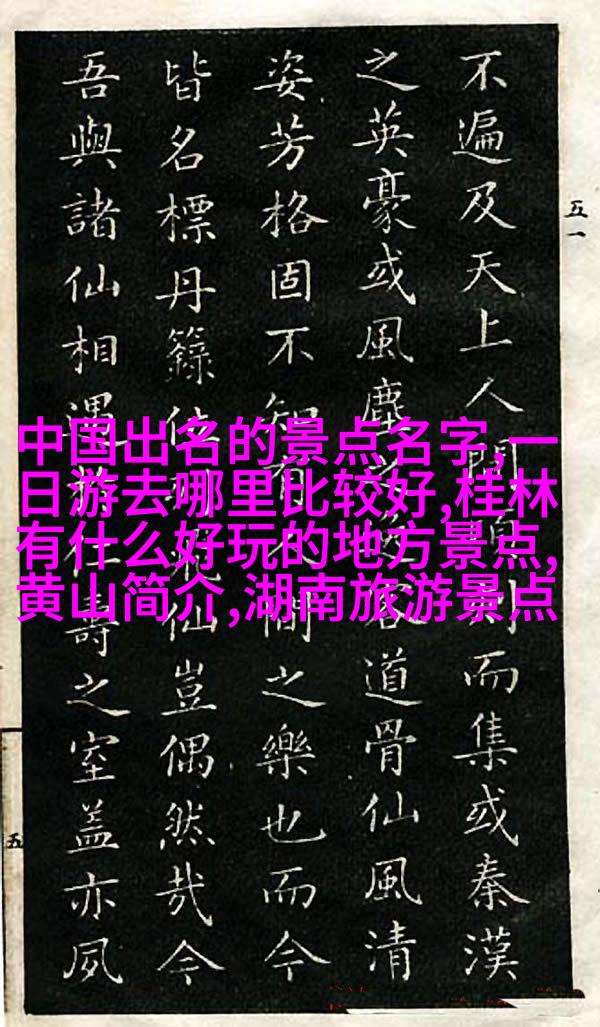 五一
不遍及天上人間而集或秦漢
之英豪或風塵客道骨仙風清
姿芳格固不知有人間之樂也而今
皆名標丹籙位仙豈偶然哉今
吾與諸仙相遇仁壽之室蓋亦夙
五
中国出名的景点名字,一
日游去哪里比较好,桂林
有什么好玩的地方景点,
黄山简介,湖南旅游景点